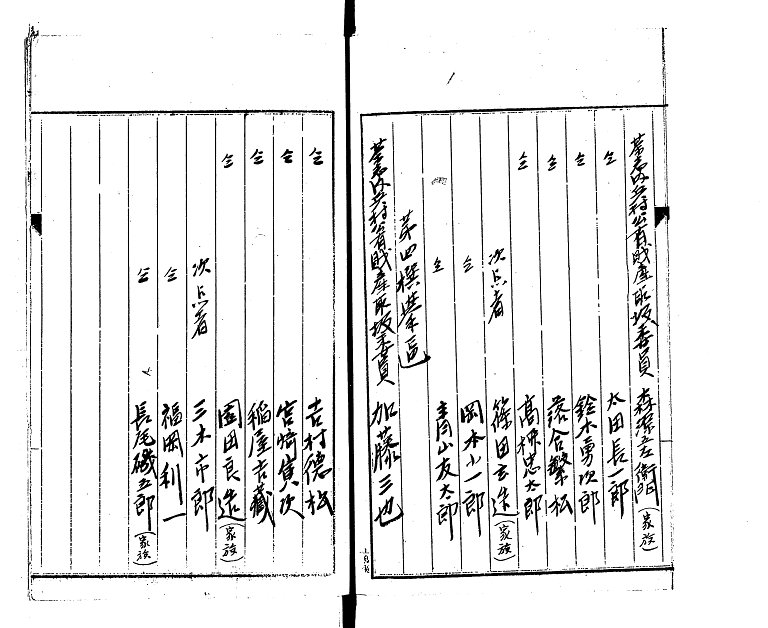 幕内兵村公有財産取扱委員 森源左衛門(家族)
仝 太田長一郎
仝 鈴木勇次郎
仝 落合繁松
仝 高桺忠太郎
次点者 篠田玄造(家族)
仝 岡本小一郎
仝 青山友太郎
第四撰挙区
兵村公有財産取扱委員 加藤三也
仝 吉村德松
仝 宮崎寅次
仝 稲屋吉藏
仝 園田良造(家族)
次点者 三木市郎
仝 福岡利一
仝 長尾礒五郎(家族)